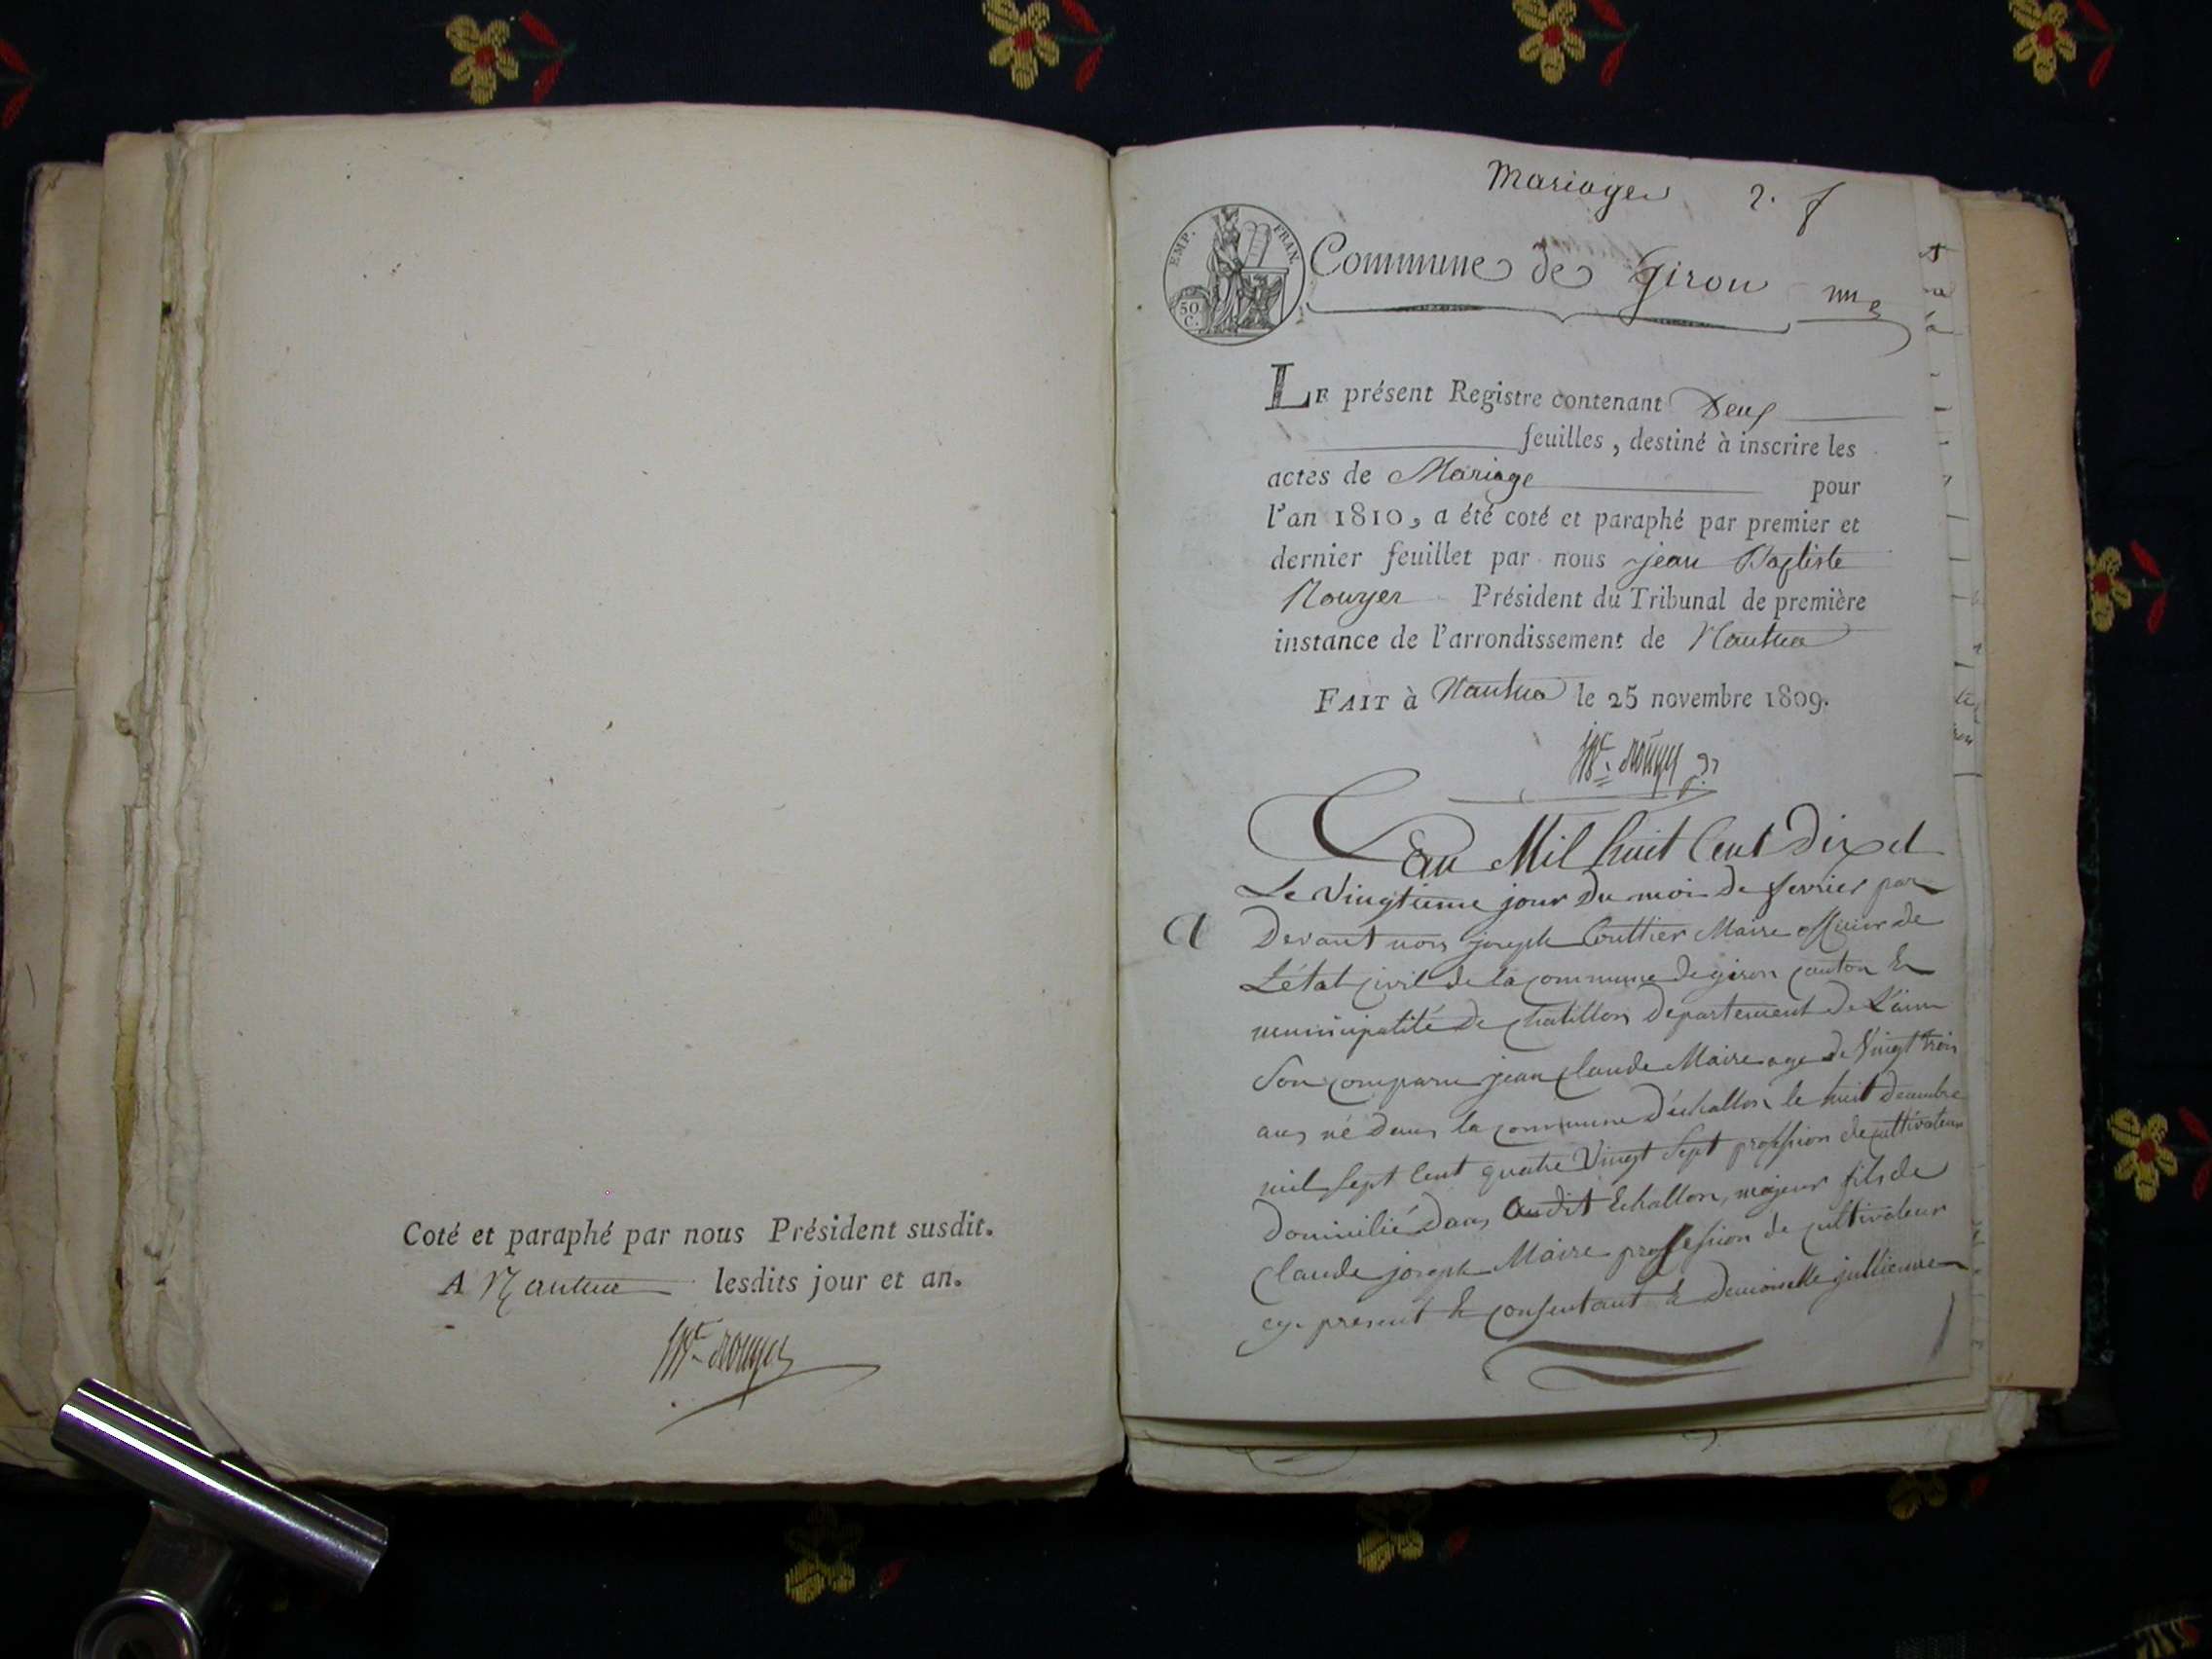 Coté et paraphé par nous Président susdit.
A Nantua lesdits jour et an.
Mariages 2. f
EMP. FRAN.
50 C.
Commune de Giron
Le présent Registre contenant Deux
feuilles, destiné à inscrire les
actes de Mariage pour
l'an 1810, a été coté et paraphé par premier et
dernier feuillet par nous jean Baptiste
Rouyer Président du Tribunal de première
instance de l'arrondissement de Nantua
FAIT à Nantua le 25 novembre 1809.
Lan Mil huit Cent Dix et
Le Vingtieme jour Du mois De fevrier par
Devant nous joseph Couttier Maire officier de
L'état civil de la commune de giron canton et
municipalité de chatillon departement de L'ain
Son comparu jean claude Maire age de Vingt trois
ans né dans la commune d'échallon le huit decembre
mil sept Cent quatre Vingt Sept profession de cultivateur
Domicilié dans audit Echallon, majeur fils de
claude joseph Maire profession de cultivateur
cy present et consentant et demoiselle jullienne